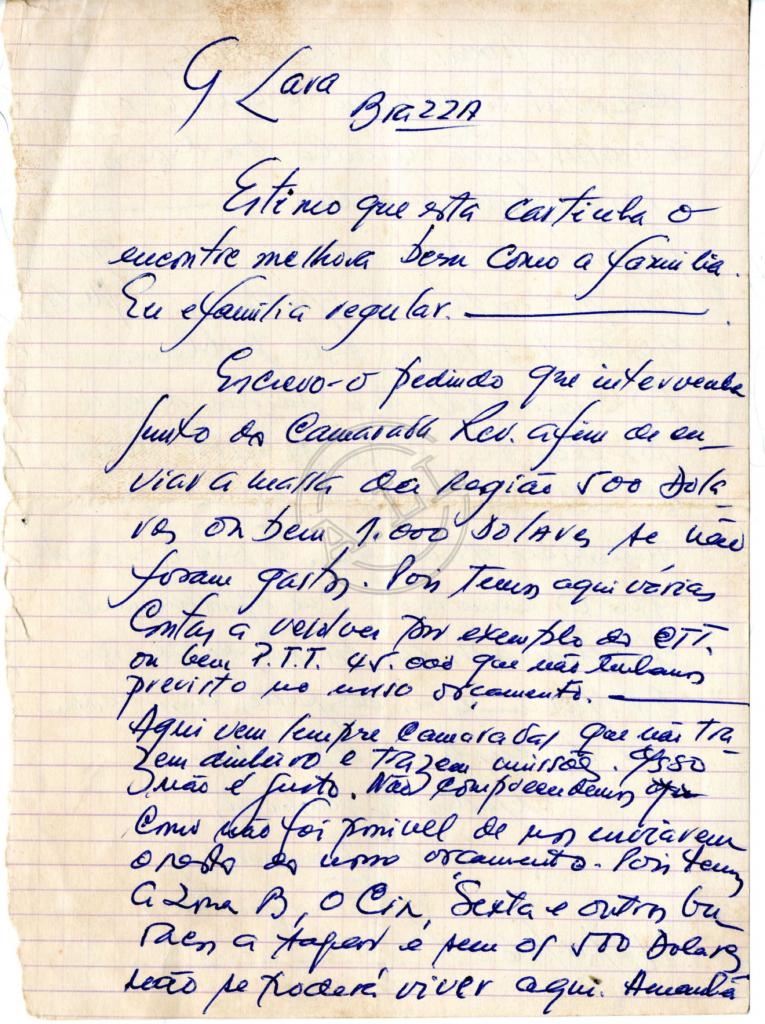 G Lara
Brazza
Estimo que esta cartinha o
encontre melhora bem como a familia.
Eu e família regular.
Escrevo-o pedindo que intervenha
junto do Camarada Rev. afim de en-
viar a massa da região 500 Dola
res ou bem 1.000 Dolares se não
foram gastos. Pois temos aqui várias
Contas a resolver por exemplo do CTT.
ou bem P.T.T. 45.000 que não tinhamos
previsto no nosso orçamento.
Aqui vem sempre Camaradas que não tra
zem dinheiro e trazem missão. Isso
não é justo. Não compreendemos
como não foi possivel de nos enviarem
o resto do nosso orçamento. Pois temos
a Zona B, o Cir, Sexta e outros bu
racos a tapar e sem os 500 Dolares
não se poderá viver aqui. Amanhã